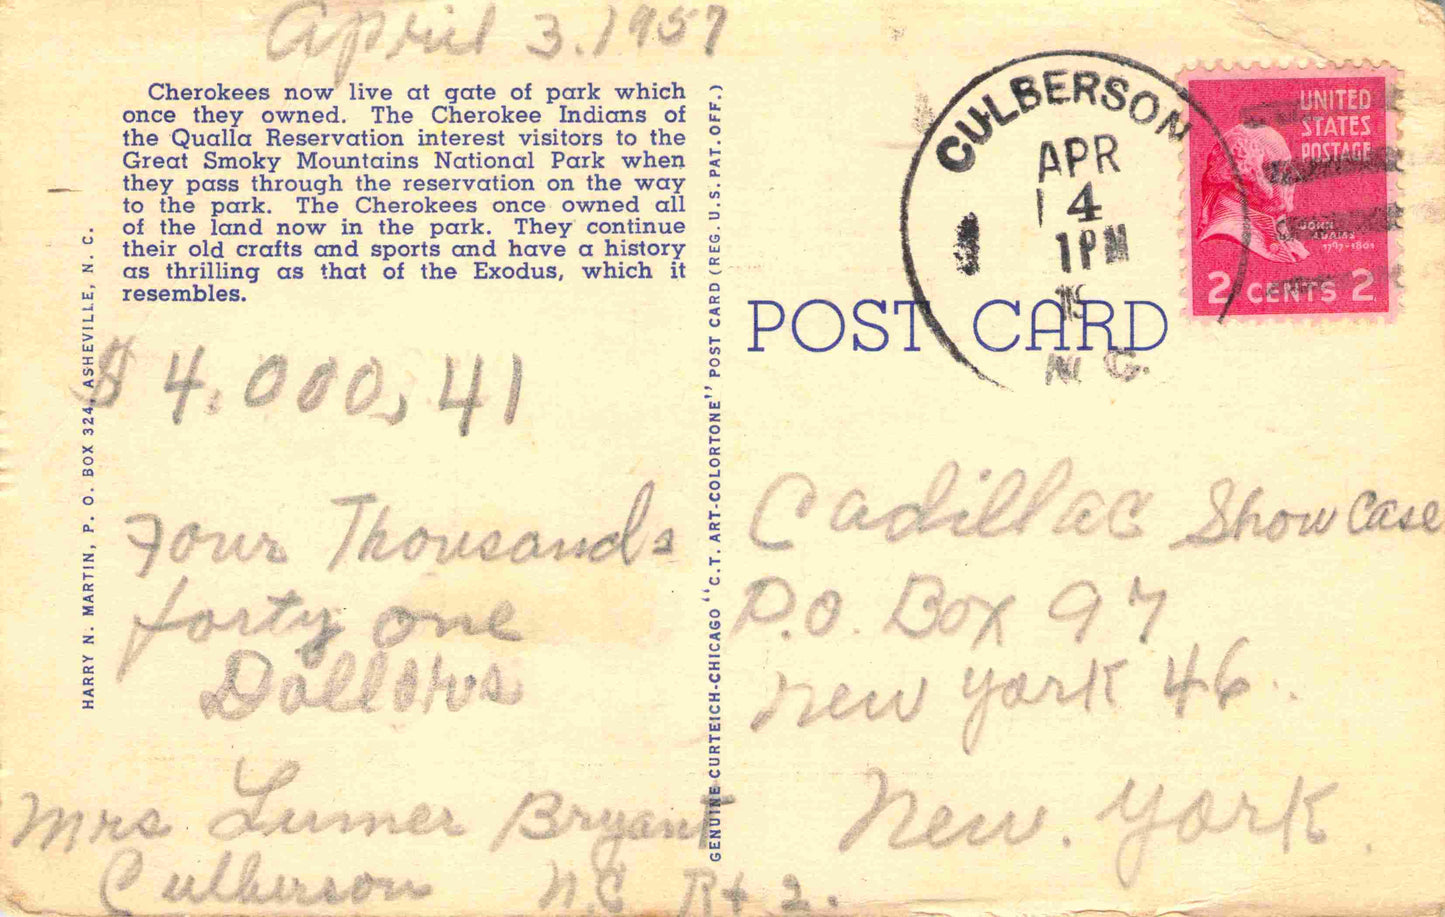 April 3. 1957
Cherokees now live at gate of park which
once they owned. The Cherokee Indians of
the Qualla Reservation interest visitors to the
Great Smoky Mountains National Park when
they pass through the reservation on the way
to the park. The Cherokees once owned all
of the land now in the park. They continue
their old crafts and sports and have a history
as thrilling as that of the Exodus, which it
resembles.
$ 4.000,41
Four Thousands
forty one
Dollars
Mrs Lumer Bryant
Culberson N.C Rt 2.
HARRY N. MARTIN, P. O. BOX 324, ASHEVILLE, N. C.
GENUINE-CURTEICH-CHICAGO "C.T. ART-COLORTONE" POST CARD (REG. U.S. PAT. OFF.)
CULBERSON
APR
4
1PM
19
N.C.
UNITED
STATES
POSTAGE
JOHN
ADAMS
1797-1801
2 CENTS 2
POST CARD
Cadillac Show Case
P.O. Box 97
New York 46.
New. York.